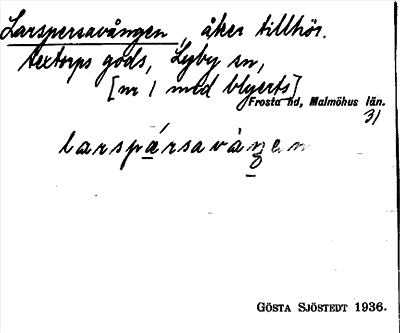 Larspersavången, åker tillhör.
textorps gods, Lyby sn,
[nr 1 med blyerts]
Frosta hd, Malmöhus län.
31
larspársavàŋen
GÖSTA SJÖSTEDT 1936.